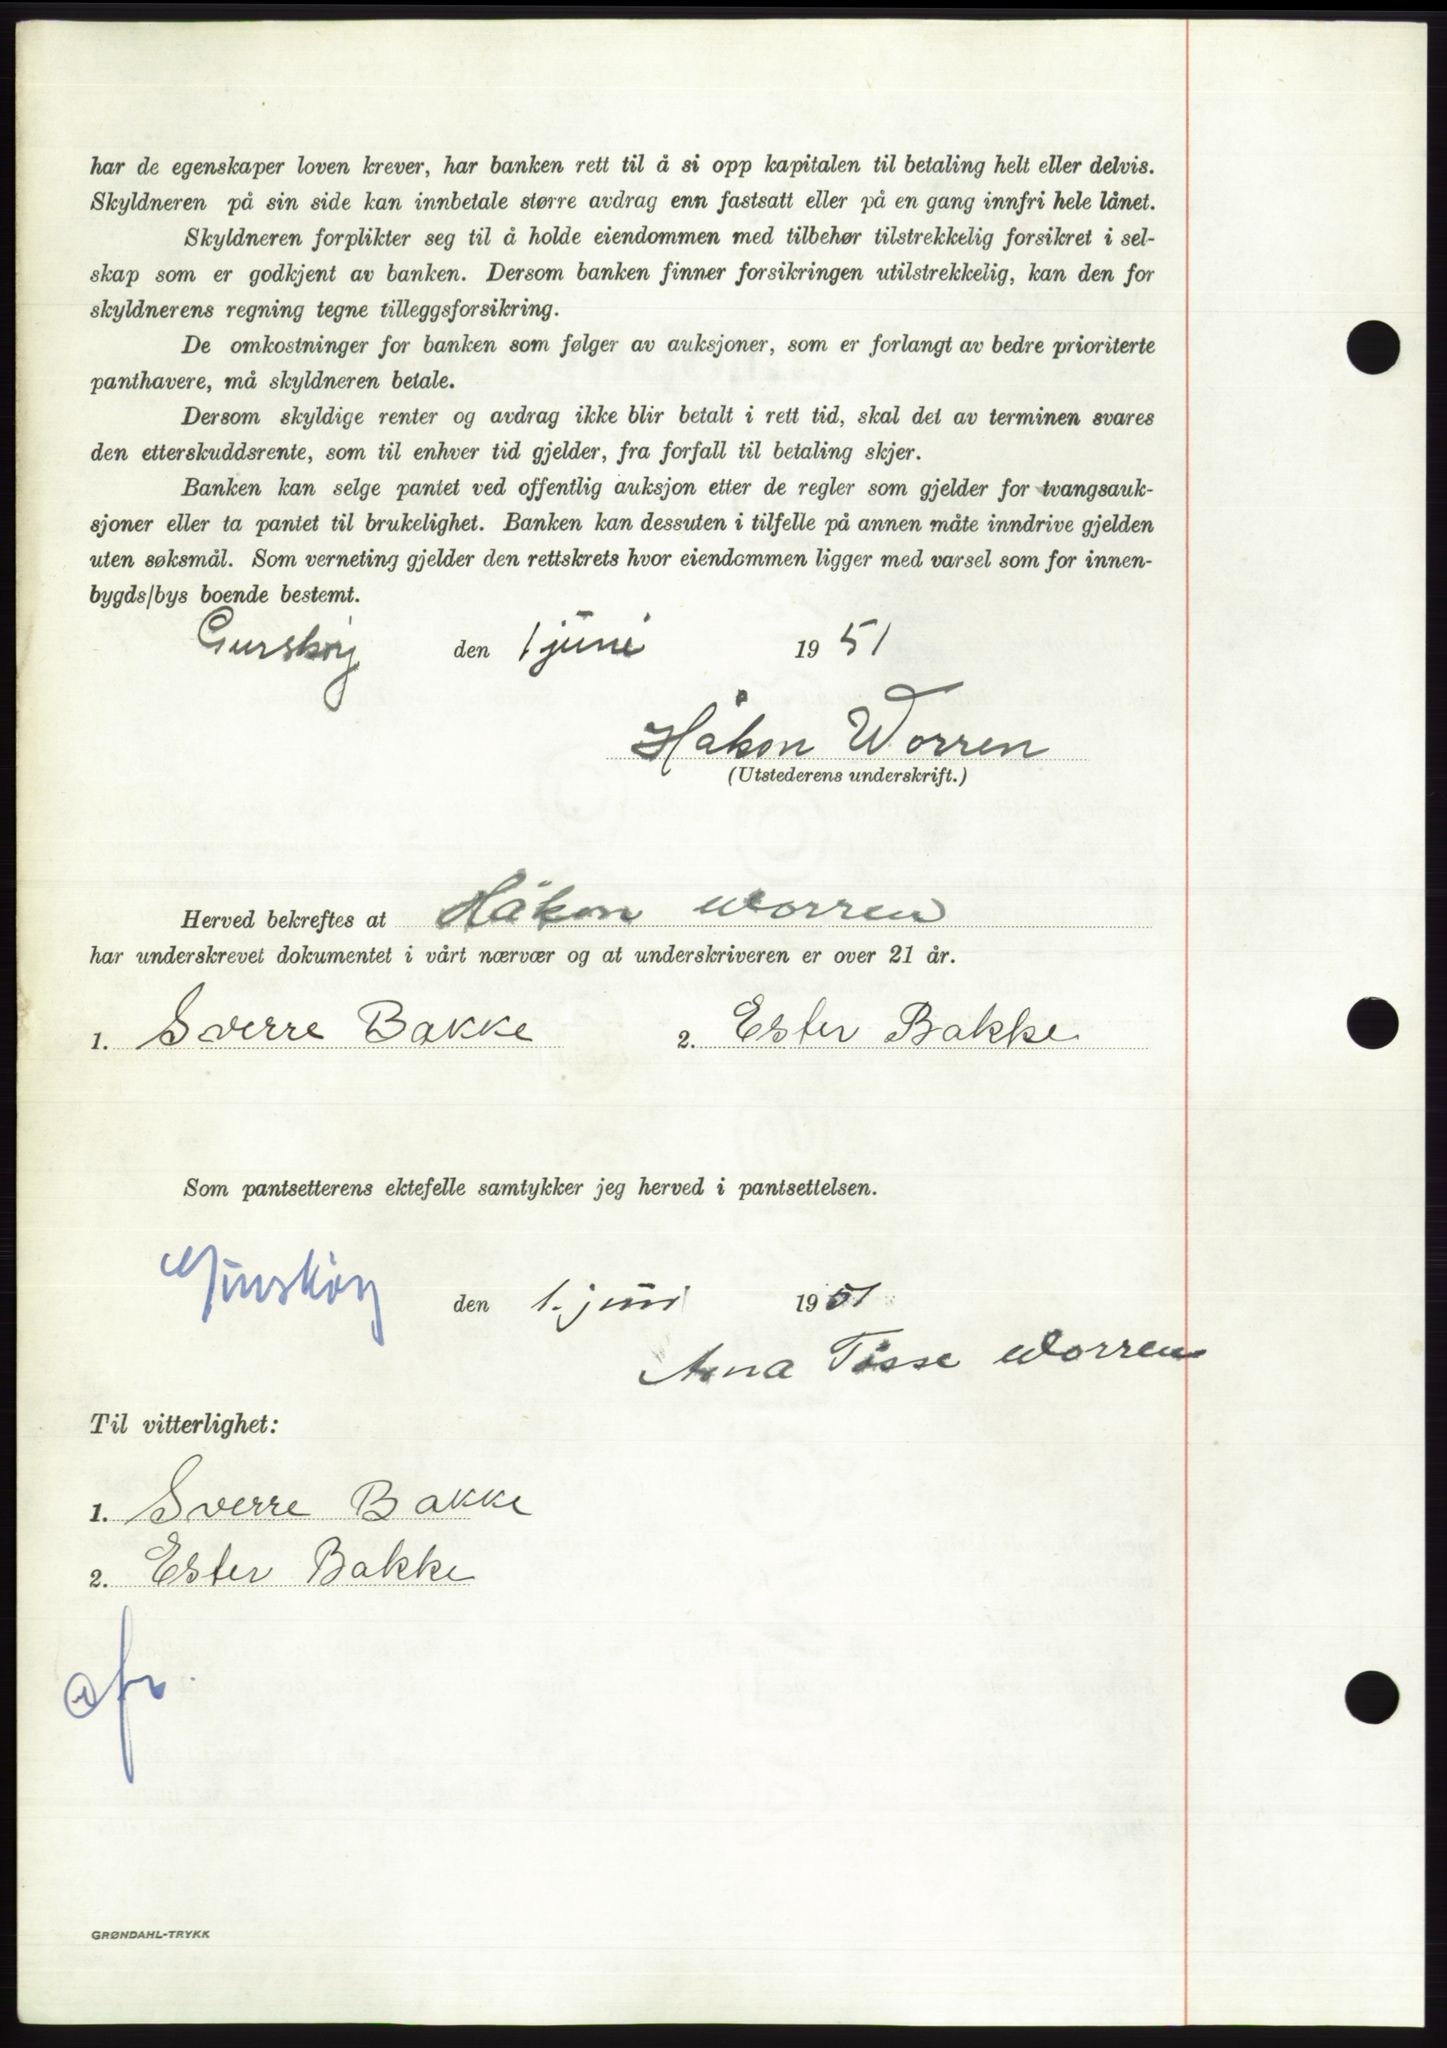 har de egenskaper loven krever, har banken rett til å si opp kapitalen til betaling helt eller delvis.
Skyldneren på sin side kan innbetale større avdrag enn fastsatt eller på en gang innfri hele lånet.
Skyldneren forplikter seg til å holde eiendommen med tilbehør tilstrekkelig forsikret i sel-
skap som er godkjent av banken. Dersom banken finner forsikringen utilstrekkelig, kan den for
skyldnerens regning tegne tilleggsforsikring.
De omkostninger for banken som følger av auksjoner, som er forlangt av bedre prioriterte
panthavere, må skyldneren betale.
Dersom skyldige renter og avdrag ikke blir betalt i rett tid, skal det av terminen svares
den etterskuddsrente, som til enhver tid gjelder, fra forfall til betaling skjer.
Banken kan selge pantet ved offentlig auksjon etter de regler som gjelder for tvangsauk-
sjoner eller ta pantet til brukelighet. Banken kan dessuten i tilfelle på annen måte inndrive gjelden
uten søksmål. Som verneting gjelder den rettskrets hvor eiendommen ligger med varsel som for innen-
bygds/bys boende bestemt.
Gurskøy den 1 juni 1951
Håkon Worren
(Utstederens underskrift.)
Herved bekreftes at Håkon Worren
har underskrevet dokumentet i vårt nærvær og at underskriveren er over 21 år.
1. Sverre Bakke 2. Ester Bakke
Som pantsetterens ektefelle samtykker jeg herved i pantsettelsen.
Gurskøy den 1. juni 1951
Anna Tosse Worren
Til vitterlighet:
1. Sverre Bakke
2. Ester Bakke
GRØNDAHL-TRYKK